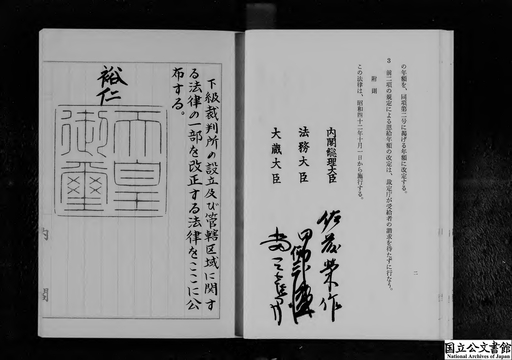 の年額を、同項第二号に掲げる年額に改定する。
3 前二項の規定による恩給年額の改定は、裁定庁が受給者の請求を待たずに行なう。
附則
この法律は、昭和四十二年十月一日から施行する。
内閣総理大臣 佐藤栄作
法務大臣
大蔵大臣
下級裁判所の設立及び管轄区域に関す
る法律の一部を改正する法律をここに公
布する。
裕仁
天皇
御璽
内閣
国立公文書館
National Archives of Japan